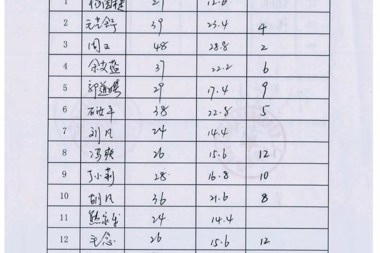 1 21 12.6
2 39 23.4 4
3 周卫 48 28.8 2
4 37 22.2 6
5 29 17.4 9
6 38 22.8 5
7 刘凡 24 14.4
8 冯爽 26 15.6 12
9 丁小莉 28 16.8 10
10 胡凡 36 21.6 8
11 24 14.4
12 毛念 26 15.6 12